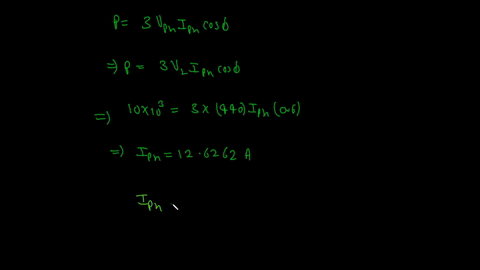 P = 3 V_ph I_ph cosϕ
⇒ P = 3 V_L I_ph cosϕ
⇒ 10×10³ = 3×(440) I_ph (0.6)
⇒ I_ph = 12.6262 A
I_ph